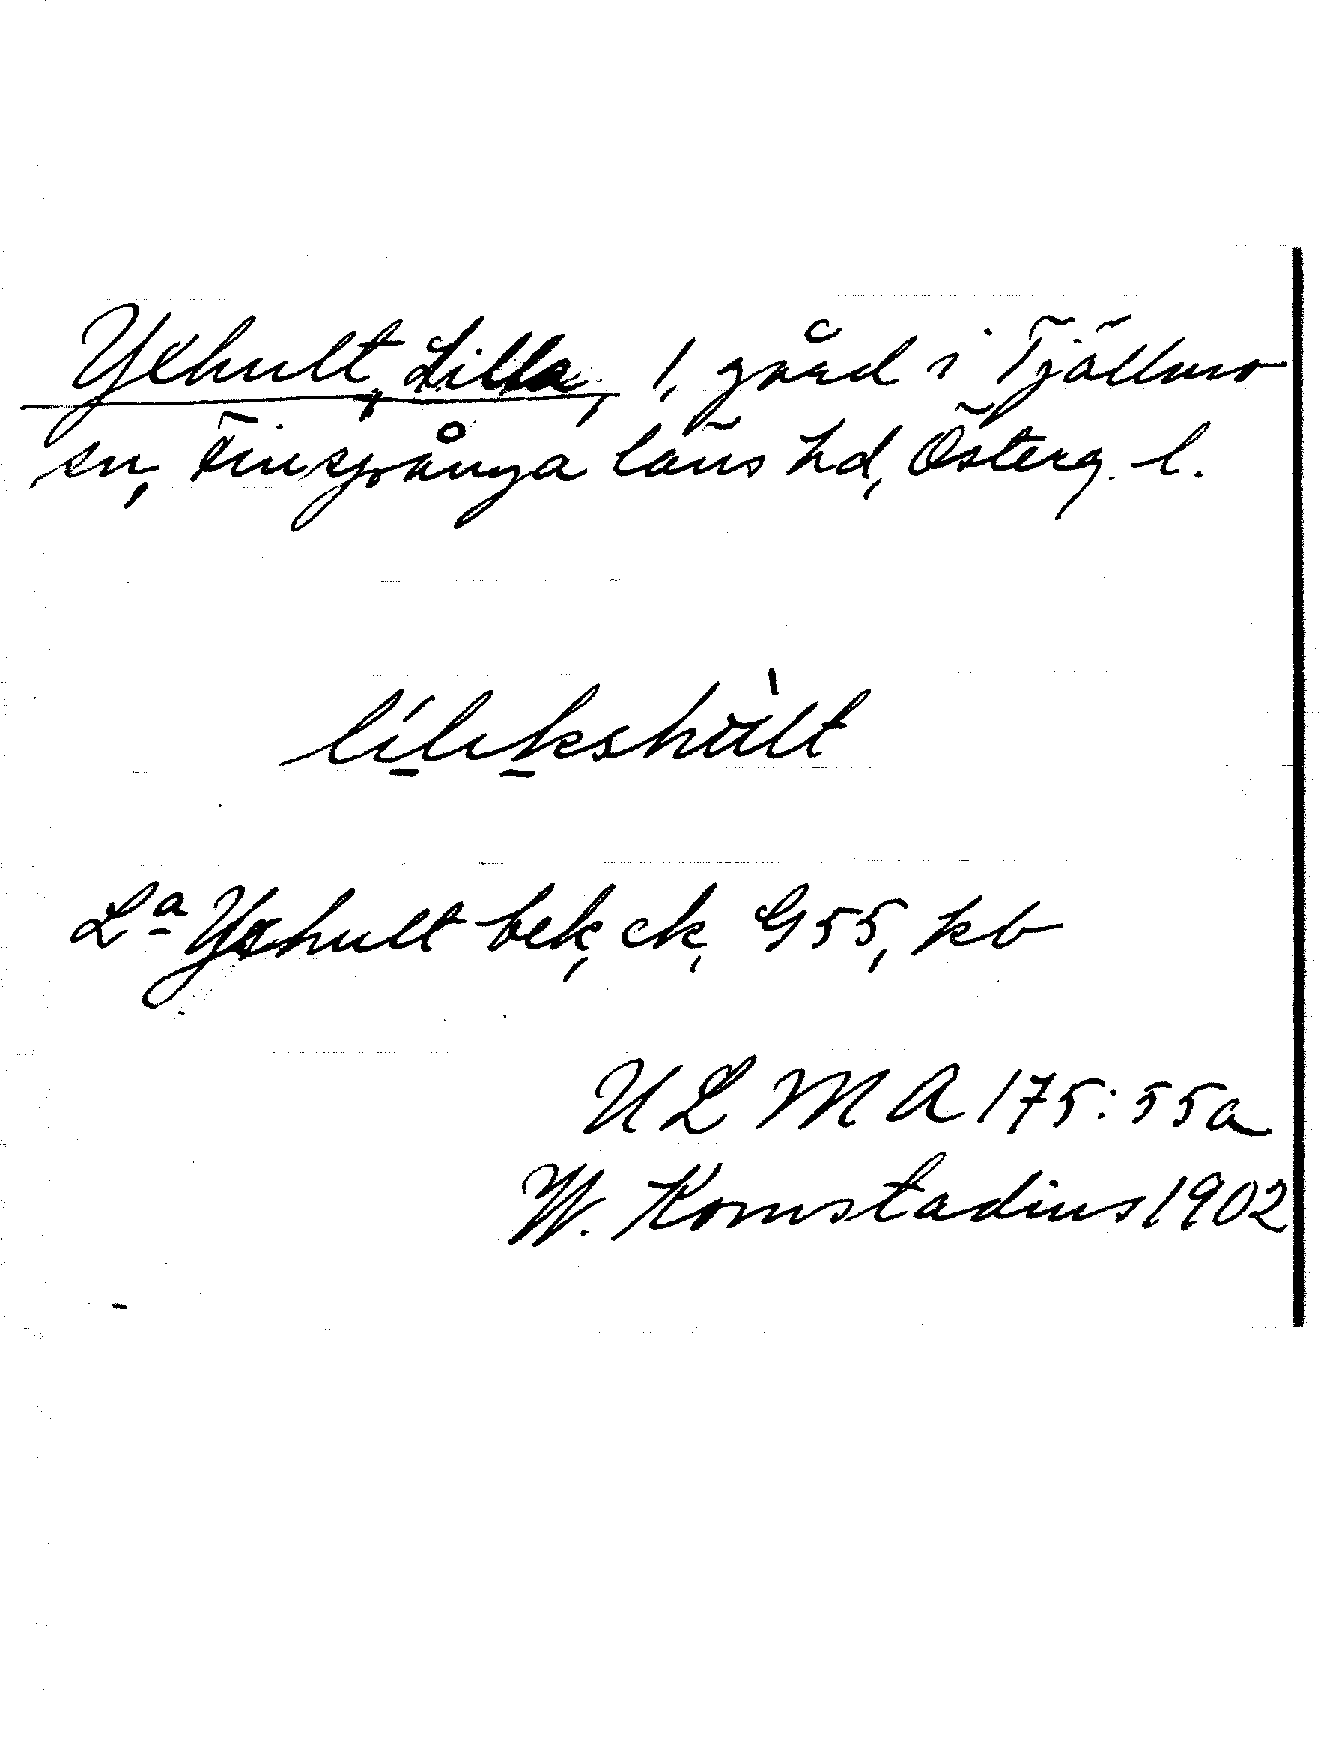 Yxhult, Lilla, 1, gård i Tjällmo
sn, Finspånga läns hd, Österg. l.
lílıkshùlt
La Yxhult bek, ek, G 55, kb
ULMA 175:55a
W. Komstadius 1902